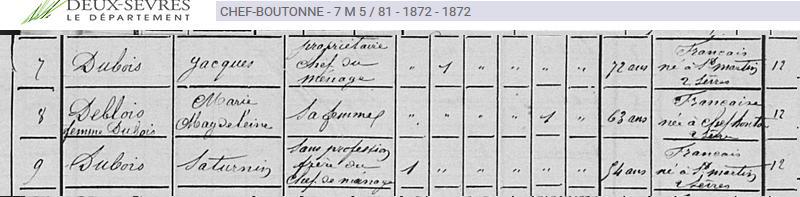 DEUX-SEVRES
LE DÉPARTEMENT
CHEF-BOUTONNE - 7 M 5 / 81 - 1872 - 1872
7 Dubois Jacques propriétaire chef du ménage " 1 " " " " 72 ans Français né à St Martin 2 Sèvres 12
8 Deblois femme Dubois Marie Magdeleine Sa femme " " " " 1 " 63 ans Française née à Chef boutonne 2 Sèvres 12
9 Dubois Saturnin Sans profession frère du chef de ménage 1 " " " " " 54 ans Français né à St Martin 2 Sèvres 12